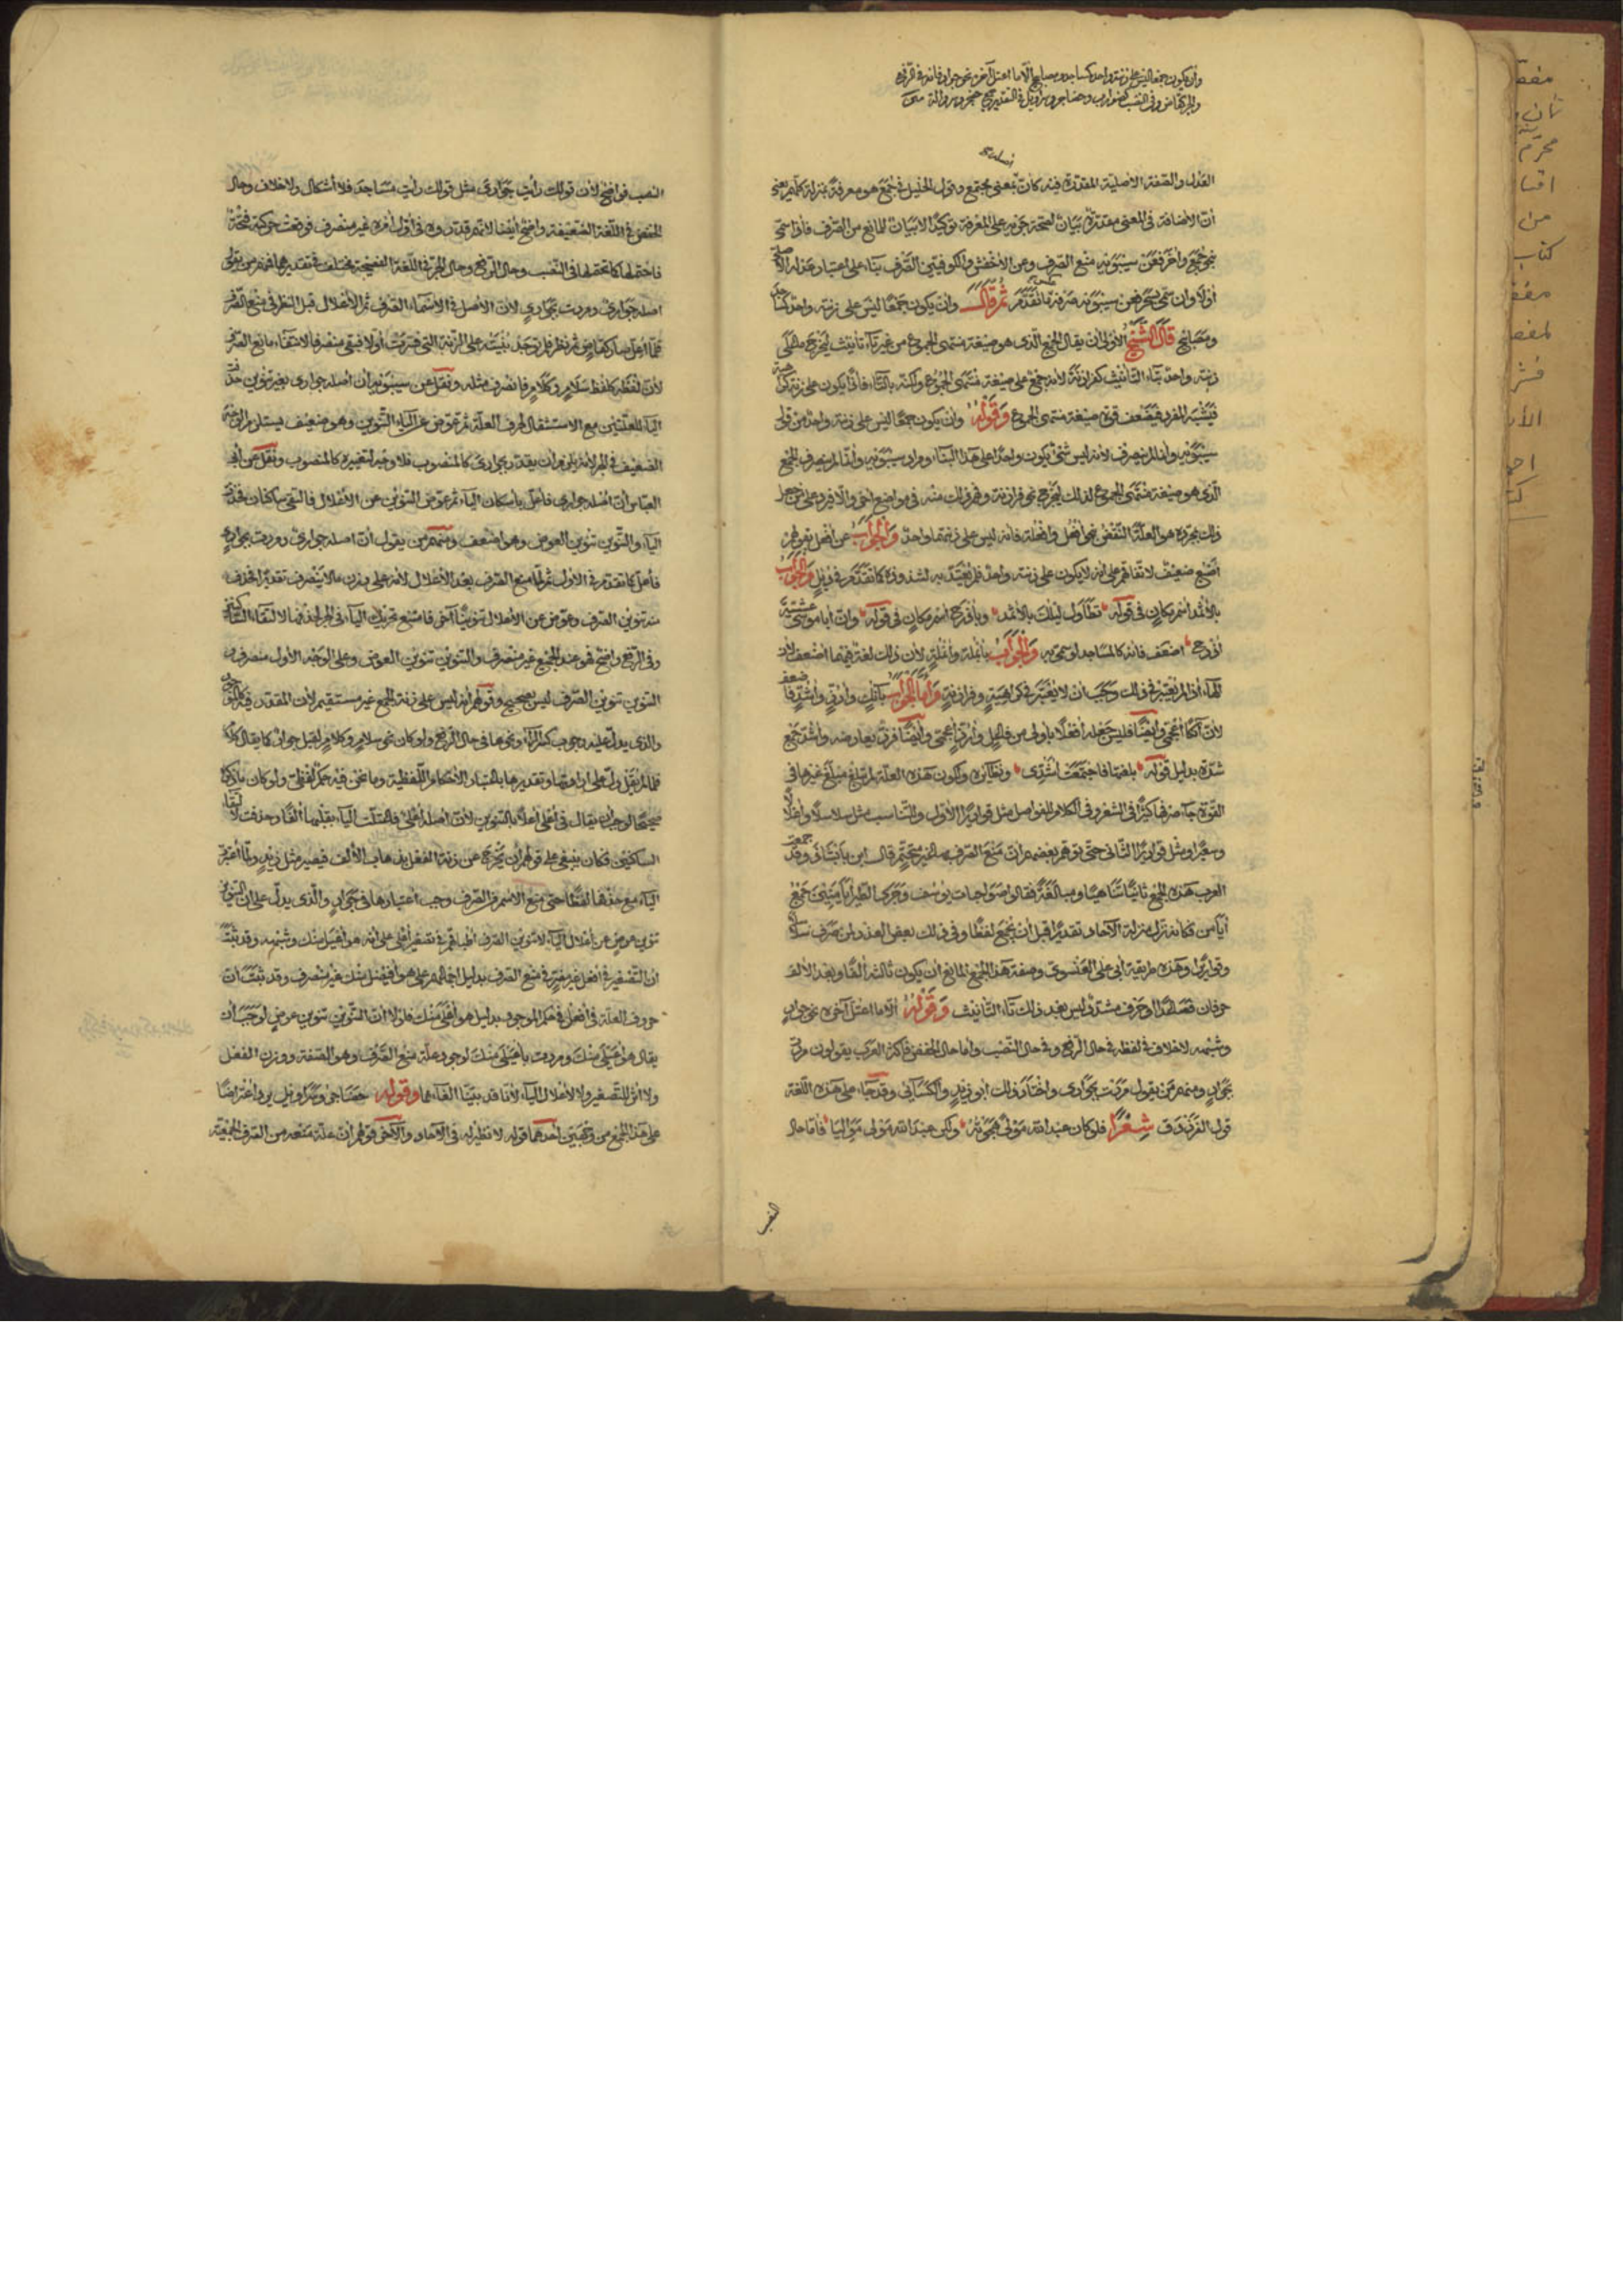 وأن يكون جمعا ليس على زنته واحد كمساجد ومصابيح إلا ما اعتل آخره نحو جوار فإنه في الرفع
والجر كقاض وفي النصب كضوارب وحضاجر وسراويل في التقدير جمع حضجر وسروالة
العدل والصفة الأصلية المقدرة فيه كان بمعنى مجتمع وقول الخليل في جمع هو معرفة بمنزلة كلهم يعني
أن الإضافة في المعنى مقدرة بيان لصحة جريه على المعرفة توكيدا لا بيان للمانع من الصرف فإذا سمي
بجمع وأخر فعن سيبويه منع الصرف وعن الأخفش والكوفيين الصرف بناء على اعتبار
أولا وإن سمي بسحر فعن سيبويه صرفه لما تقدم ثم قال وأن يكون جمعا ليس على زنته واحد كمساجد
ومصابيح قال الشيخ الأولى أن يقال الجمع الذي هو صيغة منتهى الجموع من غير تاء تأنيث ليخرج ما على
زنته واحد بتاء التأنيث كفرازنة لأنه جمع على صيغة منتهى الجموع ولكنه بالتاء فإنما يكون على زنة كراهية
فيشبه المفرد فيضعف قوة صيغة منتهى الجموع وقوله وأن يكون جمعا ليس على زنته واحد من قول
سيبويه وإنما لم ينصرف لأنه ليس شيء يكون واحدا على هذا البناء ومراد سيبويه وإنما لم ينصرف الجمع
الذي هو صيغة منتهى الجموع لذلك ليخرج نحو فرازنة وفهم ذلك منه في مواضع أخر وإلا فيرد على من جعل
ذلك بمجرده هو العلة النقض نحو أفعل وأفعلة فإنه ليس على زنتهما واحد والجواب عن أفعل بقولهم
أصبع ضعيف لاتفاقهم على أنه لا يكون على زنته واحد فلم يعتد به لشذوذه كما تقدم في دئل والجواب
بالأثمد اسم مكان في قوله تطاول ليلك بالأثمد وبأذرح اسم مكان في قوله وإن أبا موسى عشية
أذرح أضعف فإنه كالمساجد لو سمي به والجواب بأبلمة وأنملة لأن ذلك لغة فيهما أضعف لأن
التاء إذا لم يعتبر في ذلك وجب أن لا يعتبر في كراهية وفرازنة وأما الجواب بآنك وأرز وأشد فأضعف
لأن آنكا أعجمي وأيضا فليس جعله أفعلا بأولى من فاعل وأرز أعجمي وأيضا فرز يعارضه وأشد جمع
شدة بدليل قوله بلغتها فاجتمعت أشدي ونظائره ولكون هذه العلة لم تبلغ مبلغ غيرها في
القوة جاء صرفها كثيرا في الشعر وفي الكلام للفواصل مثل قواريرا الأول وللتناسب مثل سلاسلا وأغلالا
وسعيرا ومثل قواريرا الثاني حتى توهم بعضهم أن منع الصرف به غير محتم قال ابن بابشاذ وقد جمعت
العرب هذه الجمع ثانيا تناهيا ومبالغة فقالوا صواحبات يوسف
أيامن فكأنه نزل منزلة الآحاد تقديرا قبل أن يجمع لفظا وفي ذلك بعض العذر لمن صرف سلاسلا
وقواريرا وهذه طريقة أبي علي الفسوي وصفة هذا الجمع المانع أن يكون ثالثه ألفا وبعد الألف
حرفان فصاعدا أو حرف مشدد ليس بعد ذلك تاء التأنيث وقوله إلا ما اعتل آخره نحو جوار
وشبهه لا خلاف في لفظه في حال الرفع وفي حال النصب وأما حال الخفض فأكثر العرب يقولون مررت
بجوار ومنهم من يقول مررت بجواري واختار ذلك أبو زيد والكسائي وقد جاء على هذه اللغة
قول الفرزدق شعرا فلو كان عبد الله مولى هجوته ولكن عبد الله مولى مواليا فأما حال
النصب
النصب فواضح لأن قولك رأيت جواري مثل قولك رأيت مساجد فلا إشكال ولا خلاف وحال
الخفض في اللغة الضعيفة واضح أيضا لأنهم قدروه في أول أمره غير منصرف فوقعت حركته فتحة
فاحتملها كما تحتملها في النصب وحال الرفع وحال الجر في اللغة الفصيحة مختلف في تقديرهما فمنهم من يقول
أصله جواري ومررت بجواري لأن الأصل في الأسماء الصرف ثم الإعلال قبل النظر في منع الصرف
فلما أعل صار كقاض ثم نظر فلم توجد بنيته على الزنة التي اعتبرت أولا فبقي منصرفا لانتفاء مانع الصرف
لأن لفظه كلفظ سلام وكلام فانصرف مثله ونقل عن سيبويه أن أصله جواري بغير تنوين حذفت
الياء للعلتين مع الاستثقال لحرف العلة ثم عوض عن الياء التنوين وهو ضعيف يستلزم الوجه
الضعيف في الجر لأنه يلزم أن يقدر بجواري كالمنصوب فلا وجه لتغييره كالمنصوب ونقل عن أبي
العباس أن أصله جواري فأعل بإسكان الياء ثم عوض التنوين عن الإعلال فالتقى ساكنان فحذفت
الياء والتنوين تنوين العوض وهو أضعف ومنهم من يقول إن أصله جواري ومررت بجواري
فأعل كما تقدم في الأول ثم لما منع الصرف بعد الإعلال لأنه على وزن ما لا ينصرف تقديرا فحذف
منه تنوين الصرف وعوض عن الإعلال تنوينا آخر فامتنع تحريك الياء في الجر
وفي الرفع واضح فهو عند الجميع غير منصرف والتنوين تنوين العوض وعلى الوجه الأول منصرف
التنوين تنوين الصرف ليس بصحيح وقولهم إنه ليس على زنة الجمع غير مستقيم لأن المقدر فيه كالموجود
والذي يدل عليه وجوب كسر الراء ونحوها في حال الرفع ولو كان نحو سلام وكلام لقيل جوار كما يقال كلام
فلما لم يقل دل على اعتبارها وتقديرها باعتبار الأحكام اللفظية وما نحن فيه حكم لفظي ولو كان ما ذكروه
صحيحا لوجب أن يقال في أعلى أعلا بالتنوين لأن أصله أعلي فاعتلت الياء بقلبها ألفا وحذفت لالتقاء
الساكنين فكان ينبغي على قولهم أن يخرج عن زنة الفعل بذهاب الألف فيصير مثل زيد ولما اعتبر
الياء مع حذفها لفظا حتى منع الاسم من الصرف وجب اعتبارها في جوار والذي يدل على أن التنوين
تنوين عوض عن إعلال الياء لا تنوين الصرف إطباقهم في تصغير أعلى على أنه هو أعيل منك وشبهه وقد ثبت
أن التصغير في أفعل غير مغير في منع الصرف بدليل إجماعهم على هو أفيضل منك غير منصرف وقد ثبت أن
حروف العلة في أفعل في حكم الموجود بدليل هو أعلى منك فلولا أن التنوين تنوين عوض لوجب أن
يقال هو أعيلي منك ومررت بأعيلي منك لوجود علة منع الصرف وهو الصفة ووزن الفعل
ولا أثر للتصغير ولا لإعلال الياء لأنا قد بينا إلغاءهما وقوله حضاجر وسراويل يرد اعتراضا
على هذا الجمع من وجهين أحدهما قوله لا نظير له في الآحاد والآخر قولهم إن علة منعه من الصرف الجمعية